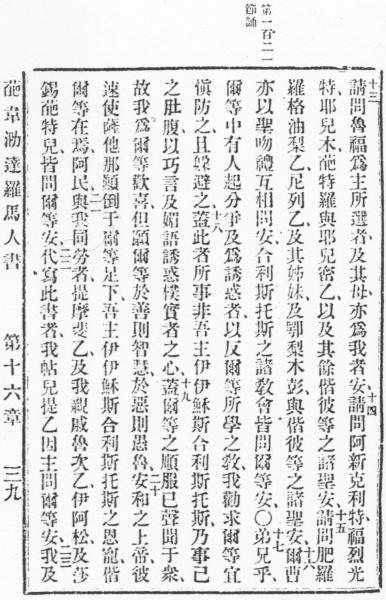 第一百二二
節誦
十三請問魯福爲主所選者及其母亦爲我者安十四請問阿新克利特福烈光
特耶兒木葩特羅與耶兒密乙以及其餘偕彼等之諸聖安十五請問肥羅
羅格油梨乙尼列乙及其姊妹及鄂梨木彭與偕彼等之諸聖安十六爾曹
亦以聖吻禮互相問安合利斯托斯之諸敎會皆問爾等安〇十七弟兄乎
爾等中有人起分爭及爲誘惑者以反爾等所學之敎我勸求爾等宜
愼防之且躱避之十八蓋此者所事非吾主伊伊穌斯合利斯托斯乃事己
之肚腹以巧言及媚語誘惑樸實者之心十九蓋爾等之順服已聲聞于衆
故我爲爾等歡喜但願爾等於善則智慧於惡則愚魯二十安和之上帝彼
速使薩他那顚倒于爾等足下吾主伊伊穌斯合利斯托斯之恩寵偕
爾等在焉阿民二一與我同勞者提摩斐乙及我親戚魯次乙伊阿松及莎
錫葩特兒皆問爾等安二二代寫此書者我帖兒提乙因主問爾等安二三我及
葩韋泐達羅馬人書 第十六章 三九